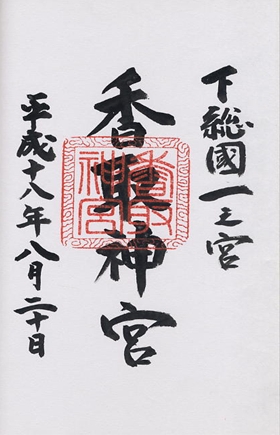 下総國一之宮
香取神宮
平成十八年八月二十日
香取神宮